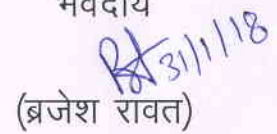 भवदीय
31/1/18
(ब्रजेश रावत)